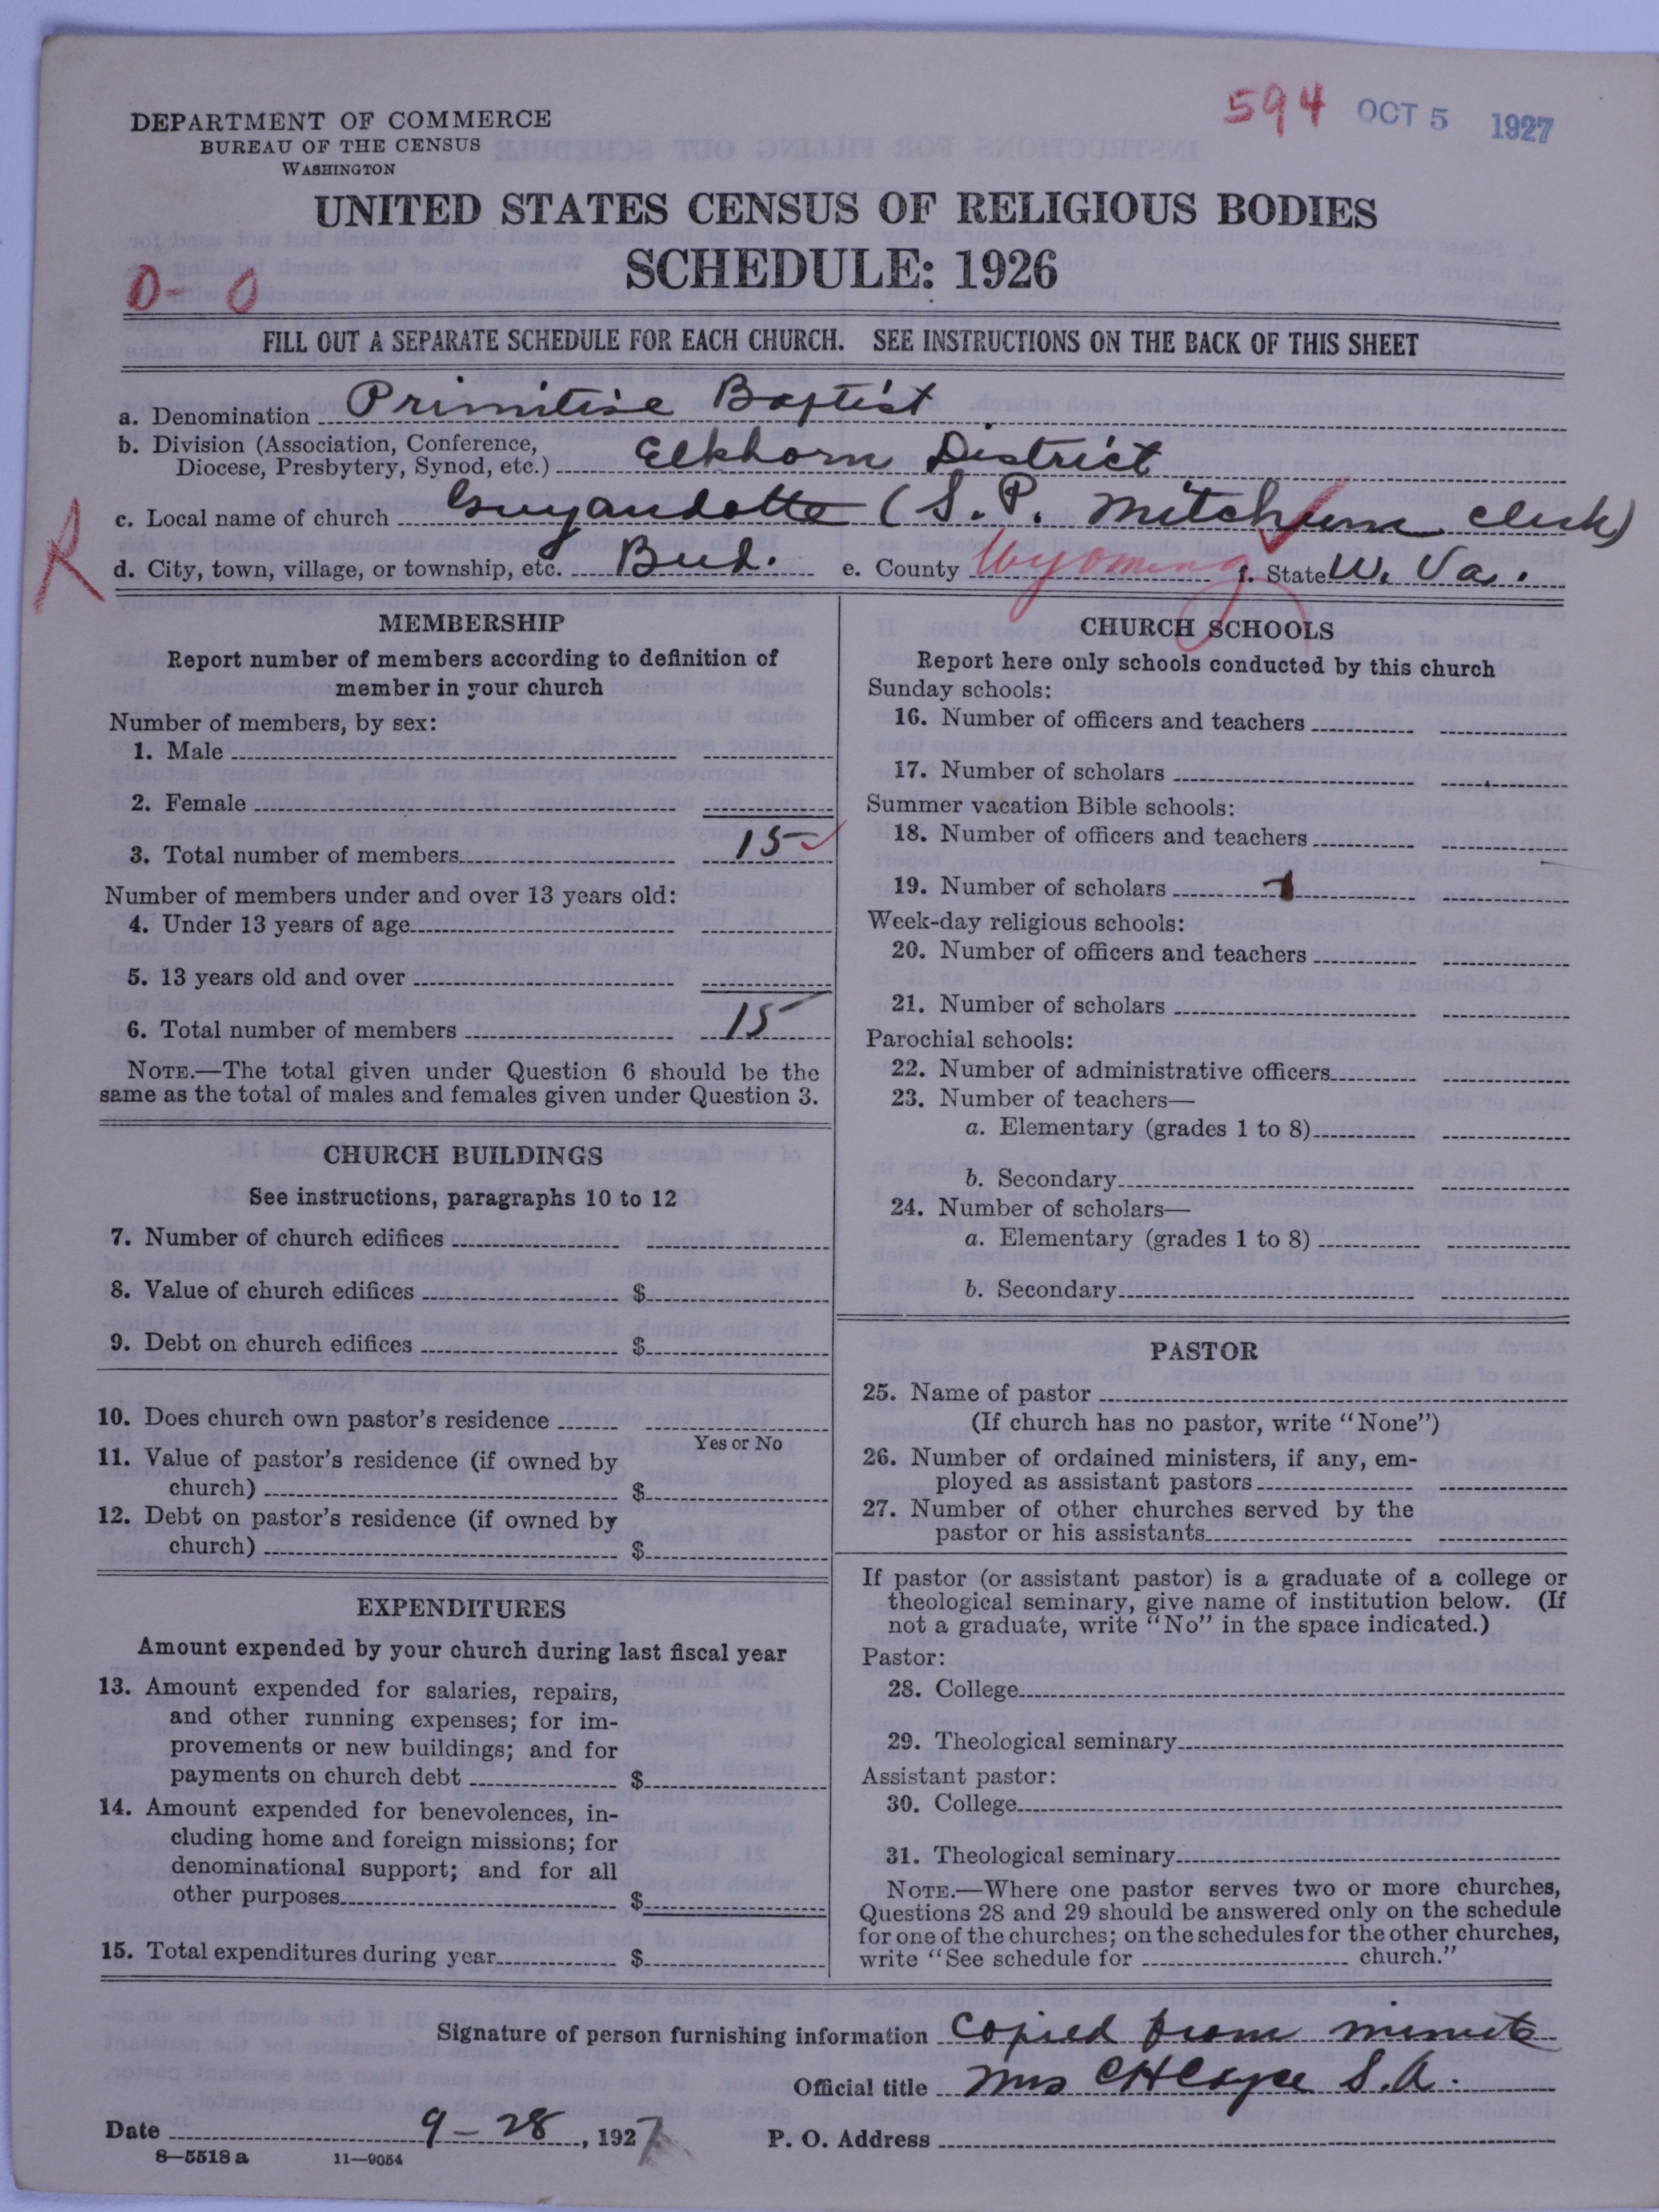 594 OCT 5 1927
DEPARTMENT OF COMMERCE
BUREAU OF THE CENSUS
WASHINGTON
UNITED STATES CENSUS OF RELIGIOUS BODIES
SCHEDULE: 1926
0-0
FILL OUT A SEPARATE SCHEDULE FOR EACH CHURCH. SEE INSTRUCTIONS ON THE BACK OF THIS SHEET
a. Denomination Primitive Baptist
b. Division (Association, Conference,
Diocese, Presbytery, Synod, etc.) Elkhorn District
c. Local name of church Guyandotte (S. P. Mitchum clerk)
R
d. City, town, village, or township, etc. Bud. e. County Wyoming f. State W. Va.
MEMBERSHIP
Report number of members according to definition of
member in your church
Number of members, by sex:
1. Male
2. Female
3. Total number of members 15
Number of members under and over 13 years old:
4. Under 13 years of age
5. 13 years old and over
6. Total number of members 15
NOTE.—The total given under Question 6 should be the
same as the total of males and females given under Question 3.
CHURCH BUILDINGS
See instructions, paragraphs 10 to 12
7. Number of church edifices
8. Value of church edifices $
9. Debt on church edifices $
10. Does church own pastor's residence
Yes or No
11. Value of pastor's residence (if owned by
church) $
12. Debt on pastor's residence (if owned by
church) $
EXPENDITURES
Amount expended by your church during last fiscal year
13. Amount expended for salaries, repairs,
and other running expenses; for im-
provements or new buildings; and for
payments on church debt $
14. Amount expended for benevolences, in-
cluding home and foreign missions; for
denominational support; and for all
other purposes $
15. Total expenditures during year $
CHURCH SCHOOLS
Report here only schools conducted by this church
Sunday schools:
16. Number of officers and teachers
17. Number of scholars
Summer vacation Bible schools:
18. Number of officers and teachers
19. Number of scholars
Week-day religious schools:
20. Number of officers and teachers
21. Number of scholars
Parochial schools:
22. Number of administrative officers
23. Number of teachers—
a. Elementary (grades 1 to 8)
b. Secondary
24. Number of scholars—
a. Elementary (grades 1 to 8)
b. Secondary
PASTOR
25. Name of pastor
(If church has no pastor, write "None")
26. Number of ordained ministers, if any, em-
ployed as assistant pastors
27. Number of other churches served by the
pastor or his assistants
If pastor (or assistant pastor) is a graduate of a college or
theological seminary, give name of institution below. (If
not a graduate, write "No" in the space indicated.)
Pastor:
28. College
29. Theological seminary
Assistant pastor:
30. College
31. Theological seminary
NOTE.—Where one pastor serves two or more churches,
Questions 28 and 29 should be answered only on the schedule
for one of the churches; on the schedules for the other churches,
write "See schedule for church."
Signature of person furnishing information Copied from minute
Official title Mrs C H Cayce S.A
Date 9-28, 1927 P. O. Address
8—5518 a 11—9054